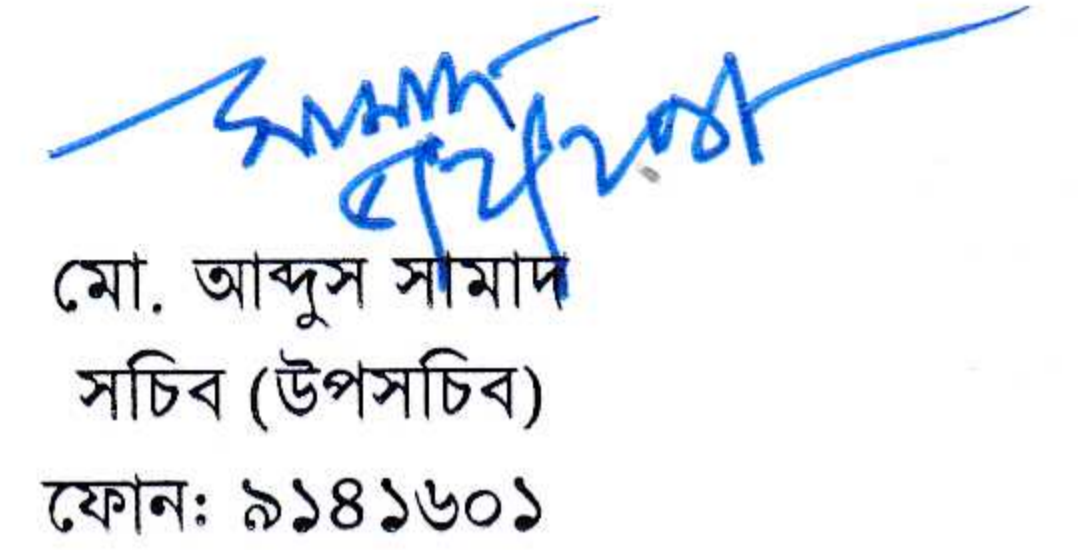 সামাদ
মো. আব্দুস সামাদ
সচিব (উপসচিব)
ফোন: ৯১৪১৬০১